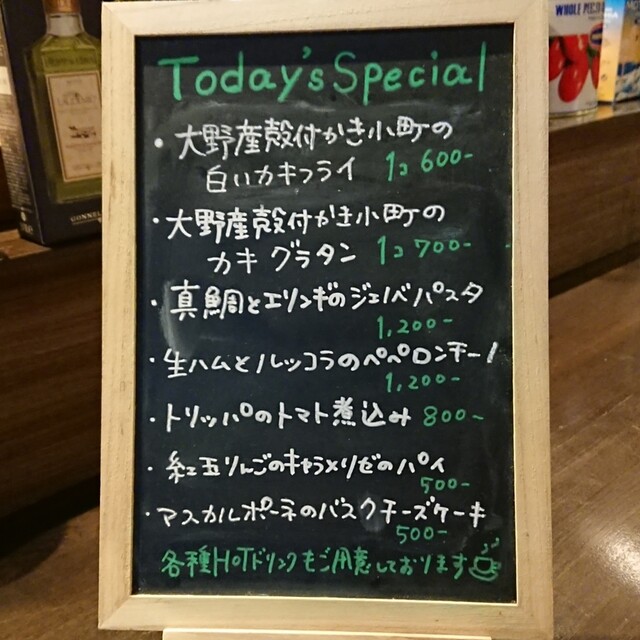 Today's Special
・大野産殻付かき小町の
白いカキフライ 1コ 600-
・大野産殻付かき小町の
カキグラタン 1コ 700-
・真鯛とエリンギのジェノベパスタ
1,200-
・生ハムとルッコラのペペロンチーノ
1,200-
・トリッパのトマト煮込み 800-
・紅玉りんごのキャラメリゼのパイ
500-
・マスカルポーネのバスクチーズケーキ
500-
各種HOTドリンクもご用意しております
WHOLE PEELED